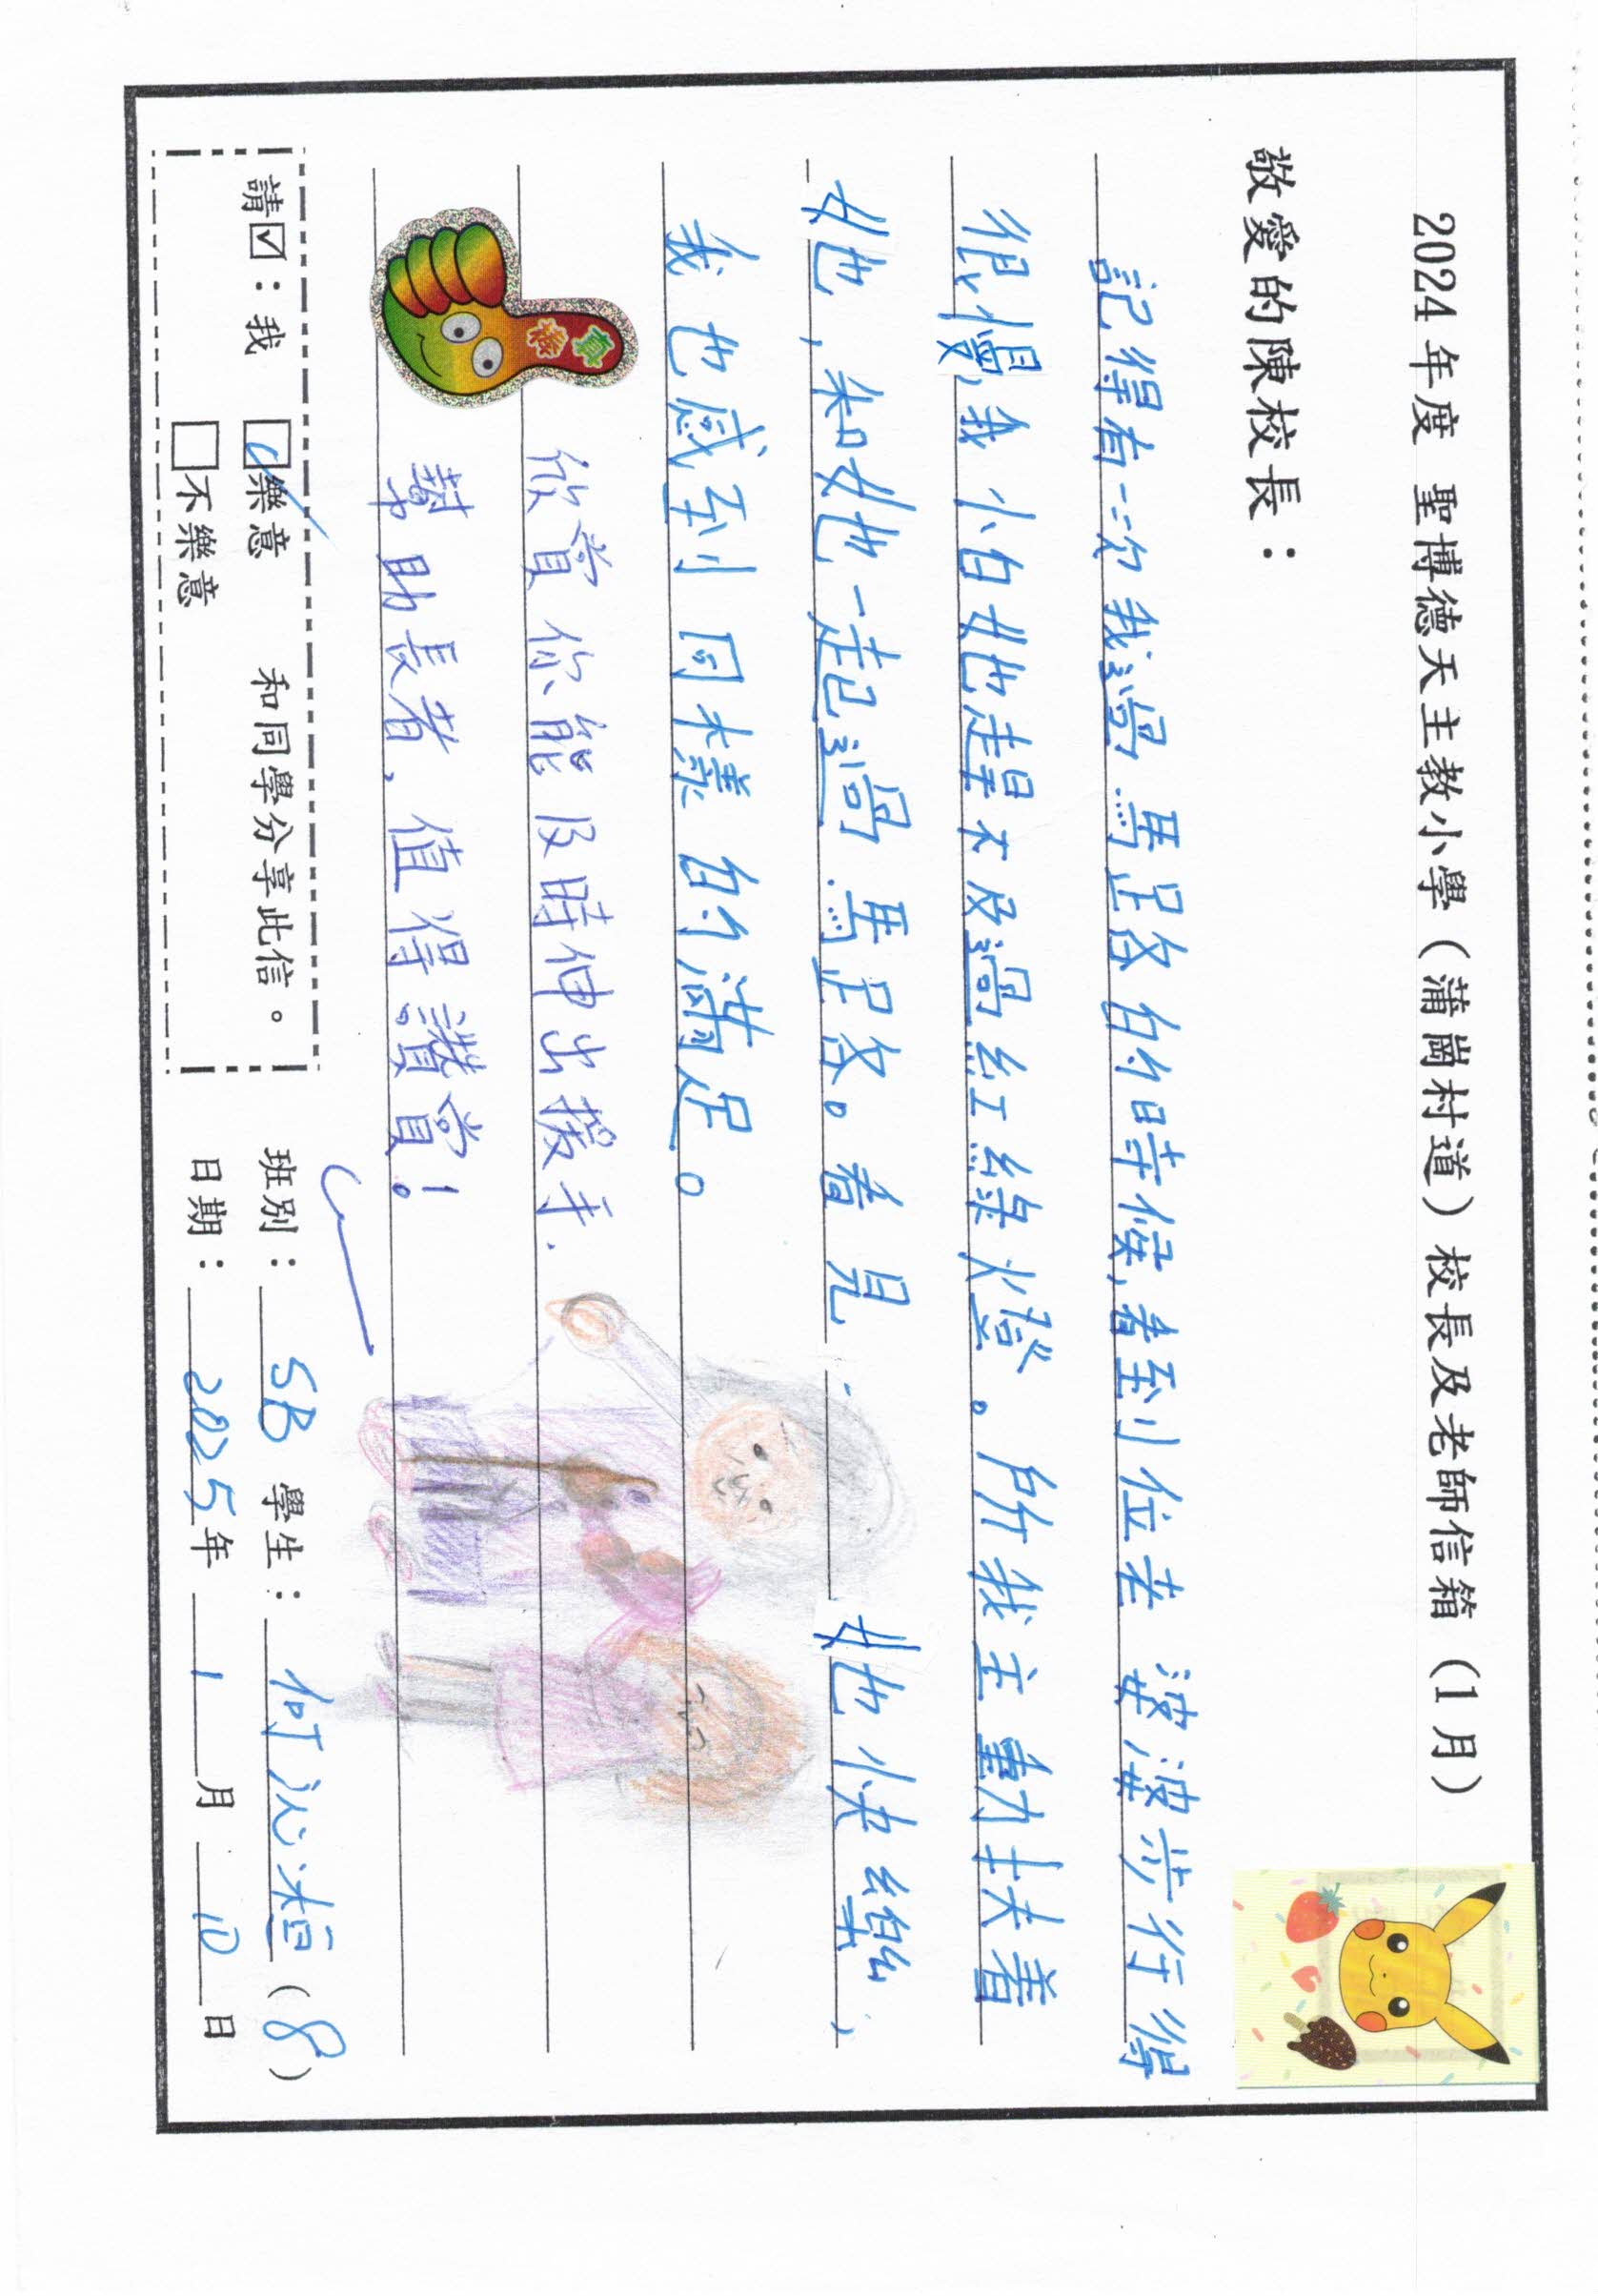 2024年度 聖博德天主教小學（蒲崗村道）校長及老師信箱（1月）
敬愛的陳校長：
記得有一次我過馬路的時候，看到位老婆婆步行得
很慢，我怕她趕不及過紅綠燈。所我主動扶着
她，和她一起過馬路。看見她快樂，
我也感到同樣的滿足。
欣賞你能及時伸出援手，
幫助長者，值得讚賞！
真棒
請☑：我 ☑樂意 和同學分享此信。
□不樂意
班別：5B 學生：何沁桓（8）
日期：2025年1月10日